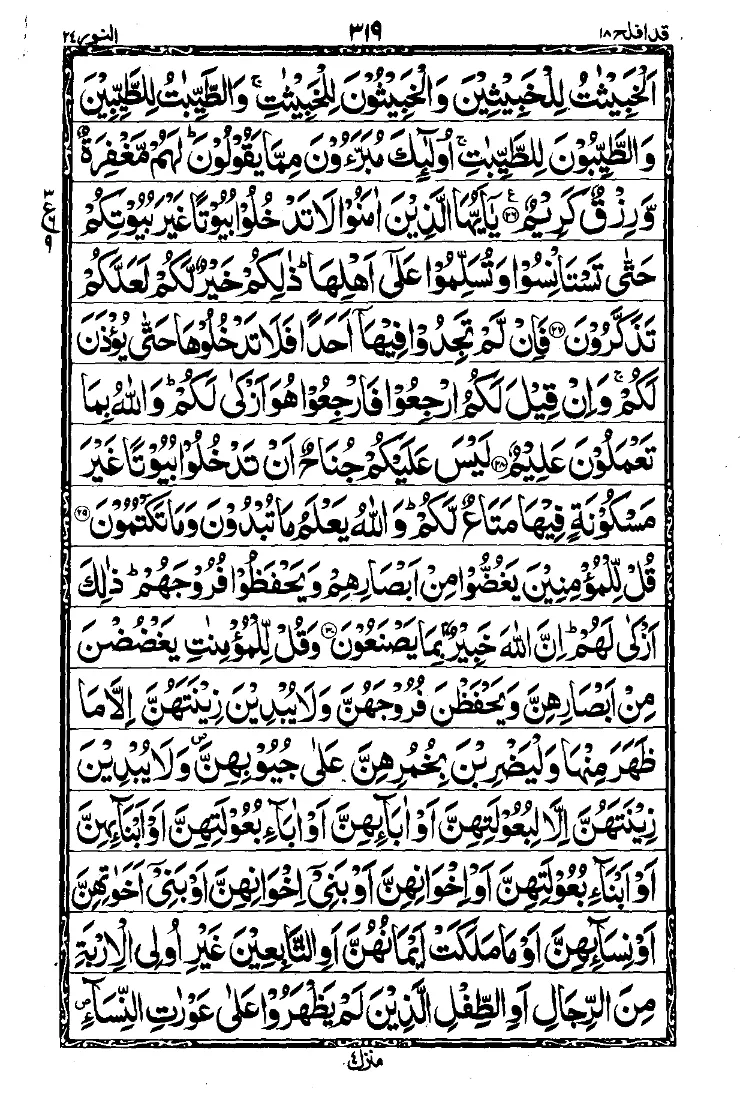 قد افلح ١٨
٣١٩
النور ٢٤
اَلْخَبِيْثٰتُ لِلْخَبِيْثِيْنَ وَالْخَبِيْثُوْنَ لِلْخَبِيْثٰتِ ۚ وَالطَّيِّبٰتُ لِلطَّيِّبِيْنَ
وَالطَّيِّبُوْنَ لِلطَّيِّبٰتِ ۚ اُولٰٓئِكَ مُبَرَّءُوْنَ مِمَّا يَقُوْلُوْنَ ؕ لَهُمْ مَّغْفِرَةٌ
وَّرِزْقٌ كَرِيْمٌ ﴿٢٦﴾ ع يٰۤاَيُّهَا الَّذِيْنَ اٰمَنُوْا لَا تَدْخُلُوْا بُيُوْتًا غَيْرَ بُيُوْتِكُمْ
حَتّٰى تَسْتَاْنِسُوْا وَتُسَلِّمُوْا عَلٰۤى اَهْلِهَا ؕ ذٰلِكُمْ خَيْرٌ لَّكُمْ لَعَلَّكُمْ
تَذَكَّرُوْنَ ﴿٢٧﴾ فَاِنْ لَّمْ تَجِدُوْا فِيْهَاۤ اَحَدًا فَلَا تَدْخُلُوْهَا حَتّٰى يُؤْذَنَ
لَكُمْ ۚ وَاِنْ قِيْلَ لَكُمُ ارْجِعُوْا فَارْجِعُوْا هُوَ اَزْكٰى لَكُمْ ؕ وَاللّٰهُ بِمَا
تَعْمَلُوْنَ عَلِيْمٌ ﴿٢٨﴾ لَيْسَ عَلَيْكُمْ جُنَاحٌ اَنْ تَدْخُلُوْا بُيُوْتًا غَيْرَ
مَسْكُوْنَةٍ فِيْهَا مَتَاعٌ لَّكُمْ ؕ وَاللّٰهُ يَعْلَمُ مَا تُبْدُوْنَ وَمَا تَكْتُمُوْنَ ﴿٢٩﴾
قُلْ لِّلْمُؤْمِنِيْنَ يَغُضُّوْا مِنْ اَبْصَارِهِمْ وَيَحْفَظُوْا فُرُوْجَهُمْ ؕ ذٰلِكَ
اَزْكٰى لَهُمْ ؕ اِنَّ اللّٰهَ خَبِيْرٌۢ بِمَا يَصْنَعُوْنَ ﴿٣٠﴾ وَقُلْ لِّلْمُؤْمِنٰتِ يَغْضُضْنَ
مِنْ اَبْصَارِهِنَّ وَيَحْفَظْنَ فُرُوْجَهُنَّ وَلَا يُبْدِيْنَ زِيْنَتَهُنَّ اِلَّا مَا
ظَهَرَ مِنْهَا وَلْيَضْرِبْنَ بِخُمُرِهِنَّ عَلٰى جُيُوْبِهِنَّ ۪ وَلَا يُبْدِيْنَ
زِيْنَتَهُنَّ اِلَّا لِبُعُوْلَتِهِنَّ اَوْ اٰبَآئِهِنَّ اَوْ اٰبَآءِ بُعُوْلَتِهِنَّ اَوْ اَبْنَآئِهِنَّ
اَوْ اَبْنَآءِ بُعُوْلَتِهِنَّ اَوْ اِخْوَانِهِنَّ اَوْ بَنِيْۤ اِخْوَانِهِنَّ اَوْ بَنِيْۤ اَخَوٰتِهِنَّ
اَوْ نِسَآئِهِنَّ اَوْ مَا مَلَكَتْ اَيْمَانُهُنَّ اَوِ التّٰبِعِيْنَ غَيْرِ اُولِى الْاِرْبَةِ
مِنَ الرِّجَالِ اَوِ الطِّفْلِ الَّذِيْنَ لَمْ يَظْهَرُوْا عَلٰى عَوْرٰتِ النِّسَآءِ ۪
٣
ع
٩
منزل ٤